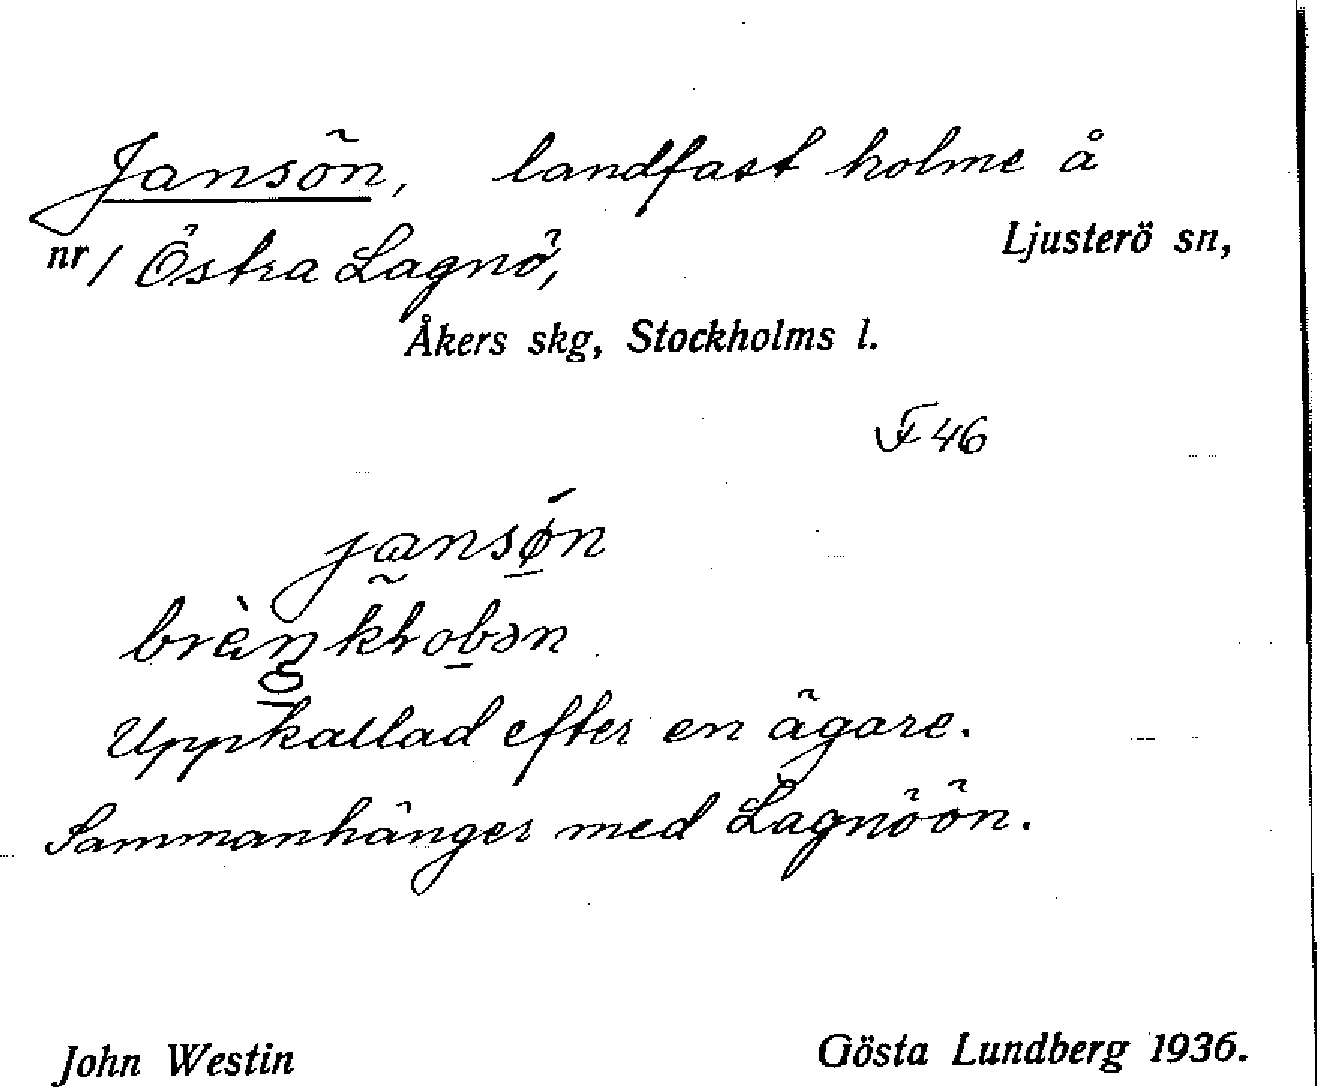 Jansön, landfast holme å
nr 1 Östra Lagnö, Ljusterö sn,
Åkers skg, Stockholms l.
F 46
Uppkallad efter en ägare.
Sammanhänger med Lagnöön.
John Westin Gösta Lundberg 1936.